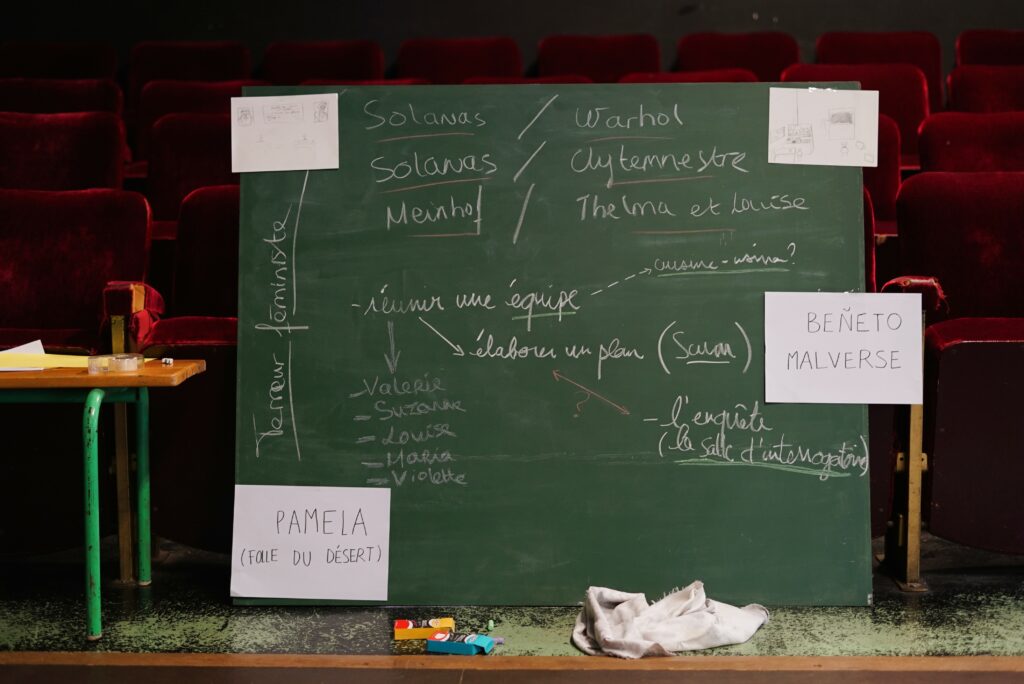 Solanas / Warhol
Solanas / Clytemnestre
Meinhof / Thelma et Louise
Terreur féministe
cuisine-usine?
- réunir une équipe
élaborer un plan (Scum)
Valérie
- Suzanne
- Louise
- Maria
- Violette
?
- l'enquête
(la salle d'interrogatoire)
BEÑETO
MALVERSE
PAMELA
(FOLLE DU DÉSERT)